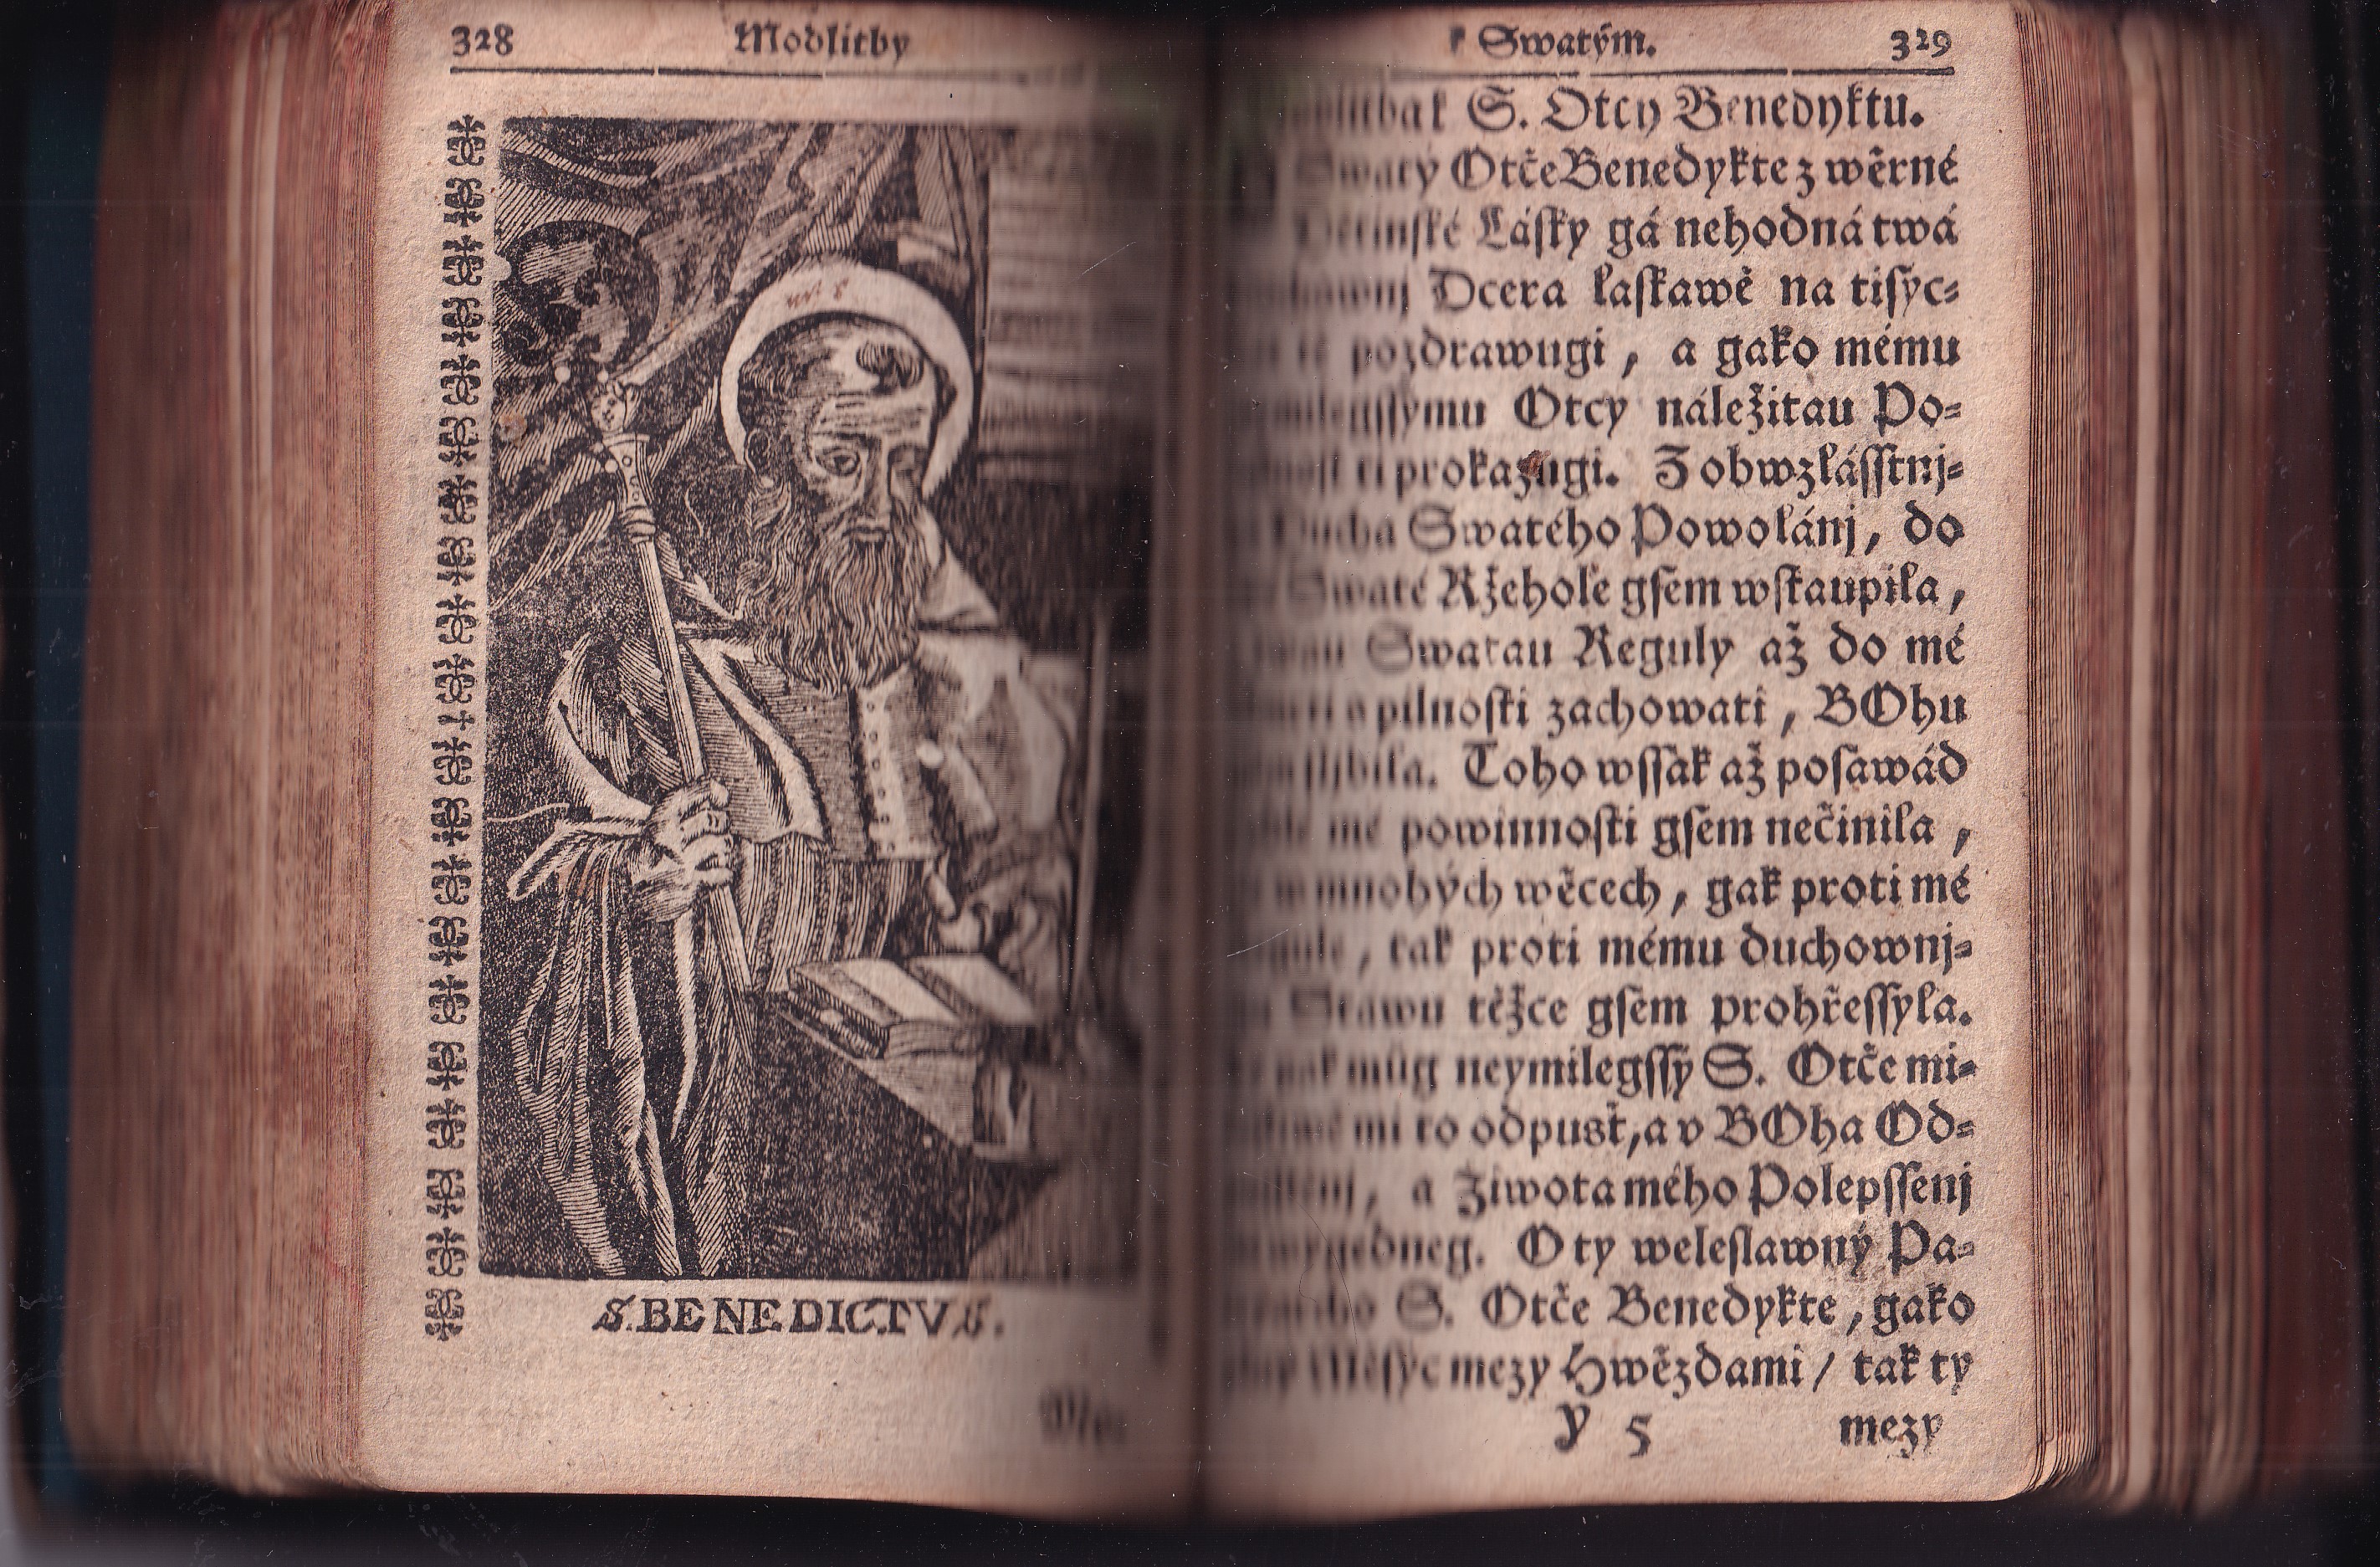 328 Modlitby
S. BENEDICTVS.
k Swatým. 329
S. Otcy Benedyktu.
Swatý Otče Benedykte z wěrné
Lásky gá nehodná twá
Dcera laskawě na tisyc-
pozdrawugi, a gako mému
Otcy náležitau Po-
ti prokazugi. Z obwzlásstnj-
Ducha Swatého Powolánj, do
Swaté Ržehole gsem wstaupila,
Swatau Reguly až do mé
a pilnosti zachowati, BOhu
Toho wssak až posawád
mé powinnosti gsem nečinila,
w mnohých wěcech, gak proti mé
, tak proti mému duchownj-
Stawu těžce gsem prohřessyla.
můg neymilegssý S. Otče mi-
mi to odpusť, a v BOha Od-
, a Ziwota mého Polepssenj
O ty weleslawný Pa-
S. Otče Benedykte, gako
Měsyc mezy Hwězdami / tak ty
Y 5 mezy